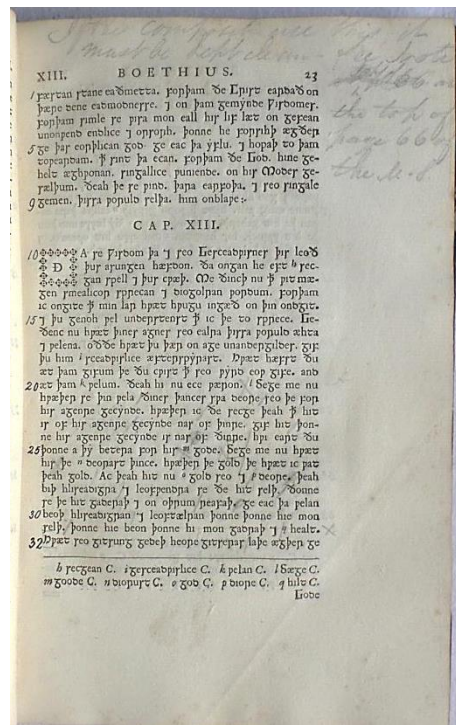 XIII. BOETHIUS. 23
1 fæstan stane eaðmetta. forþam ðe Crist eardað on
þære dene eadmodnesse. ⁊ on þam gemynde Ƿisdomes.
forþam simle se ƿisa mon eall his lif læt on gefean
unonƿend endlice ⁊ orsorh. þonne he forsihþ ægðer
5 ge þas eorþlican god. ge eac þa yflu. ⁊ hopaþ to þam
toƿeardum. ꝥ sint þa ecan. forþam ðe God. hine ge-
helt æghƿonan. singallice ƿuniende. on his Modes ge-
sælþum. ðeah þe se ƿind. þara earfoþa. ⁊ seo singale
9 gemen. þissa ƿoruld selþa. him onblaƿe:-
CAP. XIII.
10 ÐA se Ƿisdom þa ⁊ seo Gesceadƿisnes þis leoð
þus asungen hæfdon. ða ongan he eft h sec-
gan spell ⁊ þus cƿæþ. Me ðincþ nu ꝥ ƿit mæ-
gen smealicor sprecan ⁊ diogolran ƿordum. forþam
ic ongite ꝥ min lar hƿæt hƿugu ingæð on þin ondgit.
15 ⁊ þu genoh ƿel understenst ꝥ ic þe to sprece. Ge-
ðenc nu hƿæt þines agnes seo ealra þissa ƿoruld æhta
⁊ ƿelena. oððe hƿæt þu þær on age unandergildes. gif
þu him i sceadƿislice æfterspyrast. Hƿæt hæfst ðu
æt þam gifum þe ðu cƿist ꝥ seo ƿyrd eoƿ gife. and
20 æt þam k ƿelum. ðeah hi nu ece ƿæron. l Sege me nu
hƿæþer se þin ƿela ðines þances sƿa deore seo þe for
his agenre gecynde. hƿæþer ic ðe secge þeah ꝥ hit
is of his agenre gecynde nas of þinre. gif hit þon-
ne his agenre gecynde is nas of ðinre. hƿi eart ðu
25 þonne a þy betera for his m gode. Sege me nu hƿæt
his þe n deorast þince. hƿæþer þe gold þe hƿæt ic ƿat
þeah gold. Ac þeah hit nu o gold seo ⁊ p deore. þeah
biþ hliseadigra ⁊ leofƿendra se ðe hit selþ. ðonne
se þe hit gaderaþ ⁊ on oþrum reafaþ. ge eac þa ƿelan
30 beoþ hliseadigran ⁊ leoftælran þonne þonne hie mon
selþ. þonne hie beon þonne hi mon gadraþ ⁊ q healt.
32 Hƿæt seo gitsung gedeþ heore gitseras laþe ægþer ge
h secgean C. i gesceadƿislice C. k ƿelan C. l Sæge C.
m goode C. n diorust C. o god C. p diore C. q hilt C.
Gode